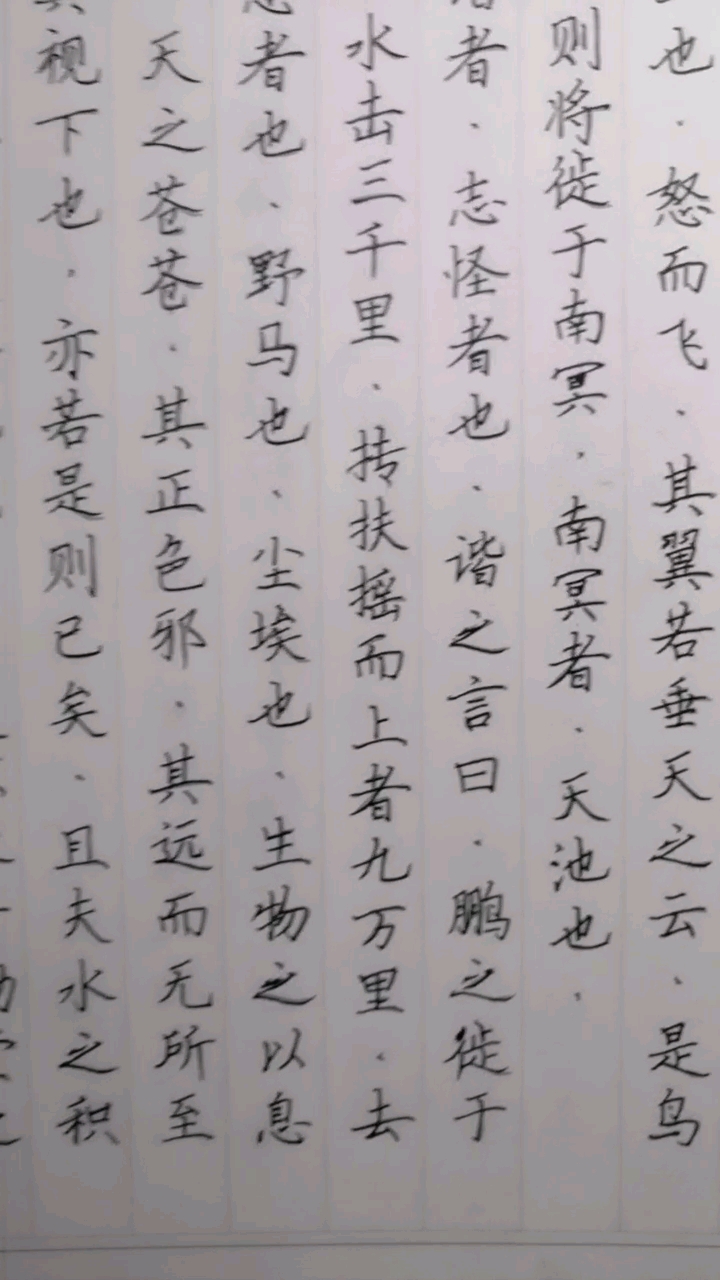 也．怒而飞．其翼若垂天之云．是鸟
则将徙于南冥．南冥者．天池也．
者．志怪者也．谐之言曰．鹏之徙于
水击三千里．抟扶摇而上者九万里．去
者也．野马也．尘埃也．生物之以息
天之苍苍．其正色邪．其远而无所至
视下也．亦若是则已矣．且夫水之积